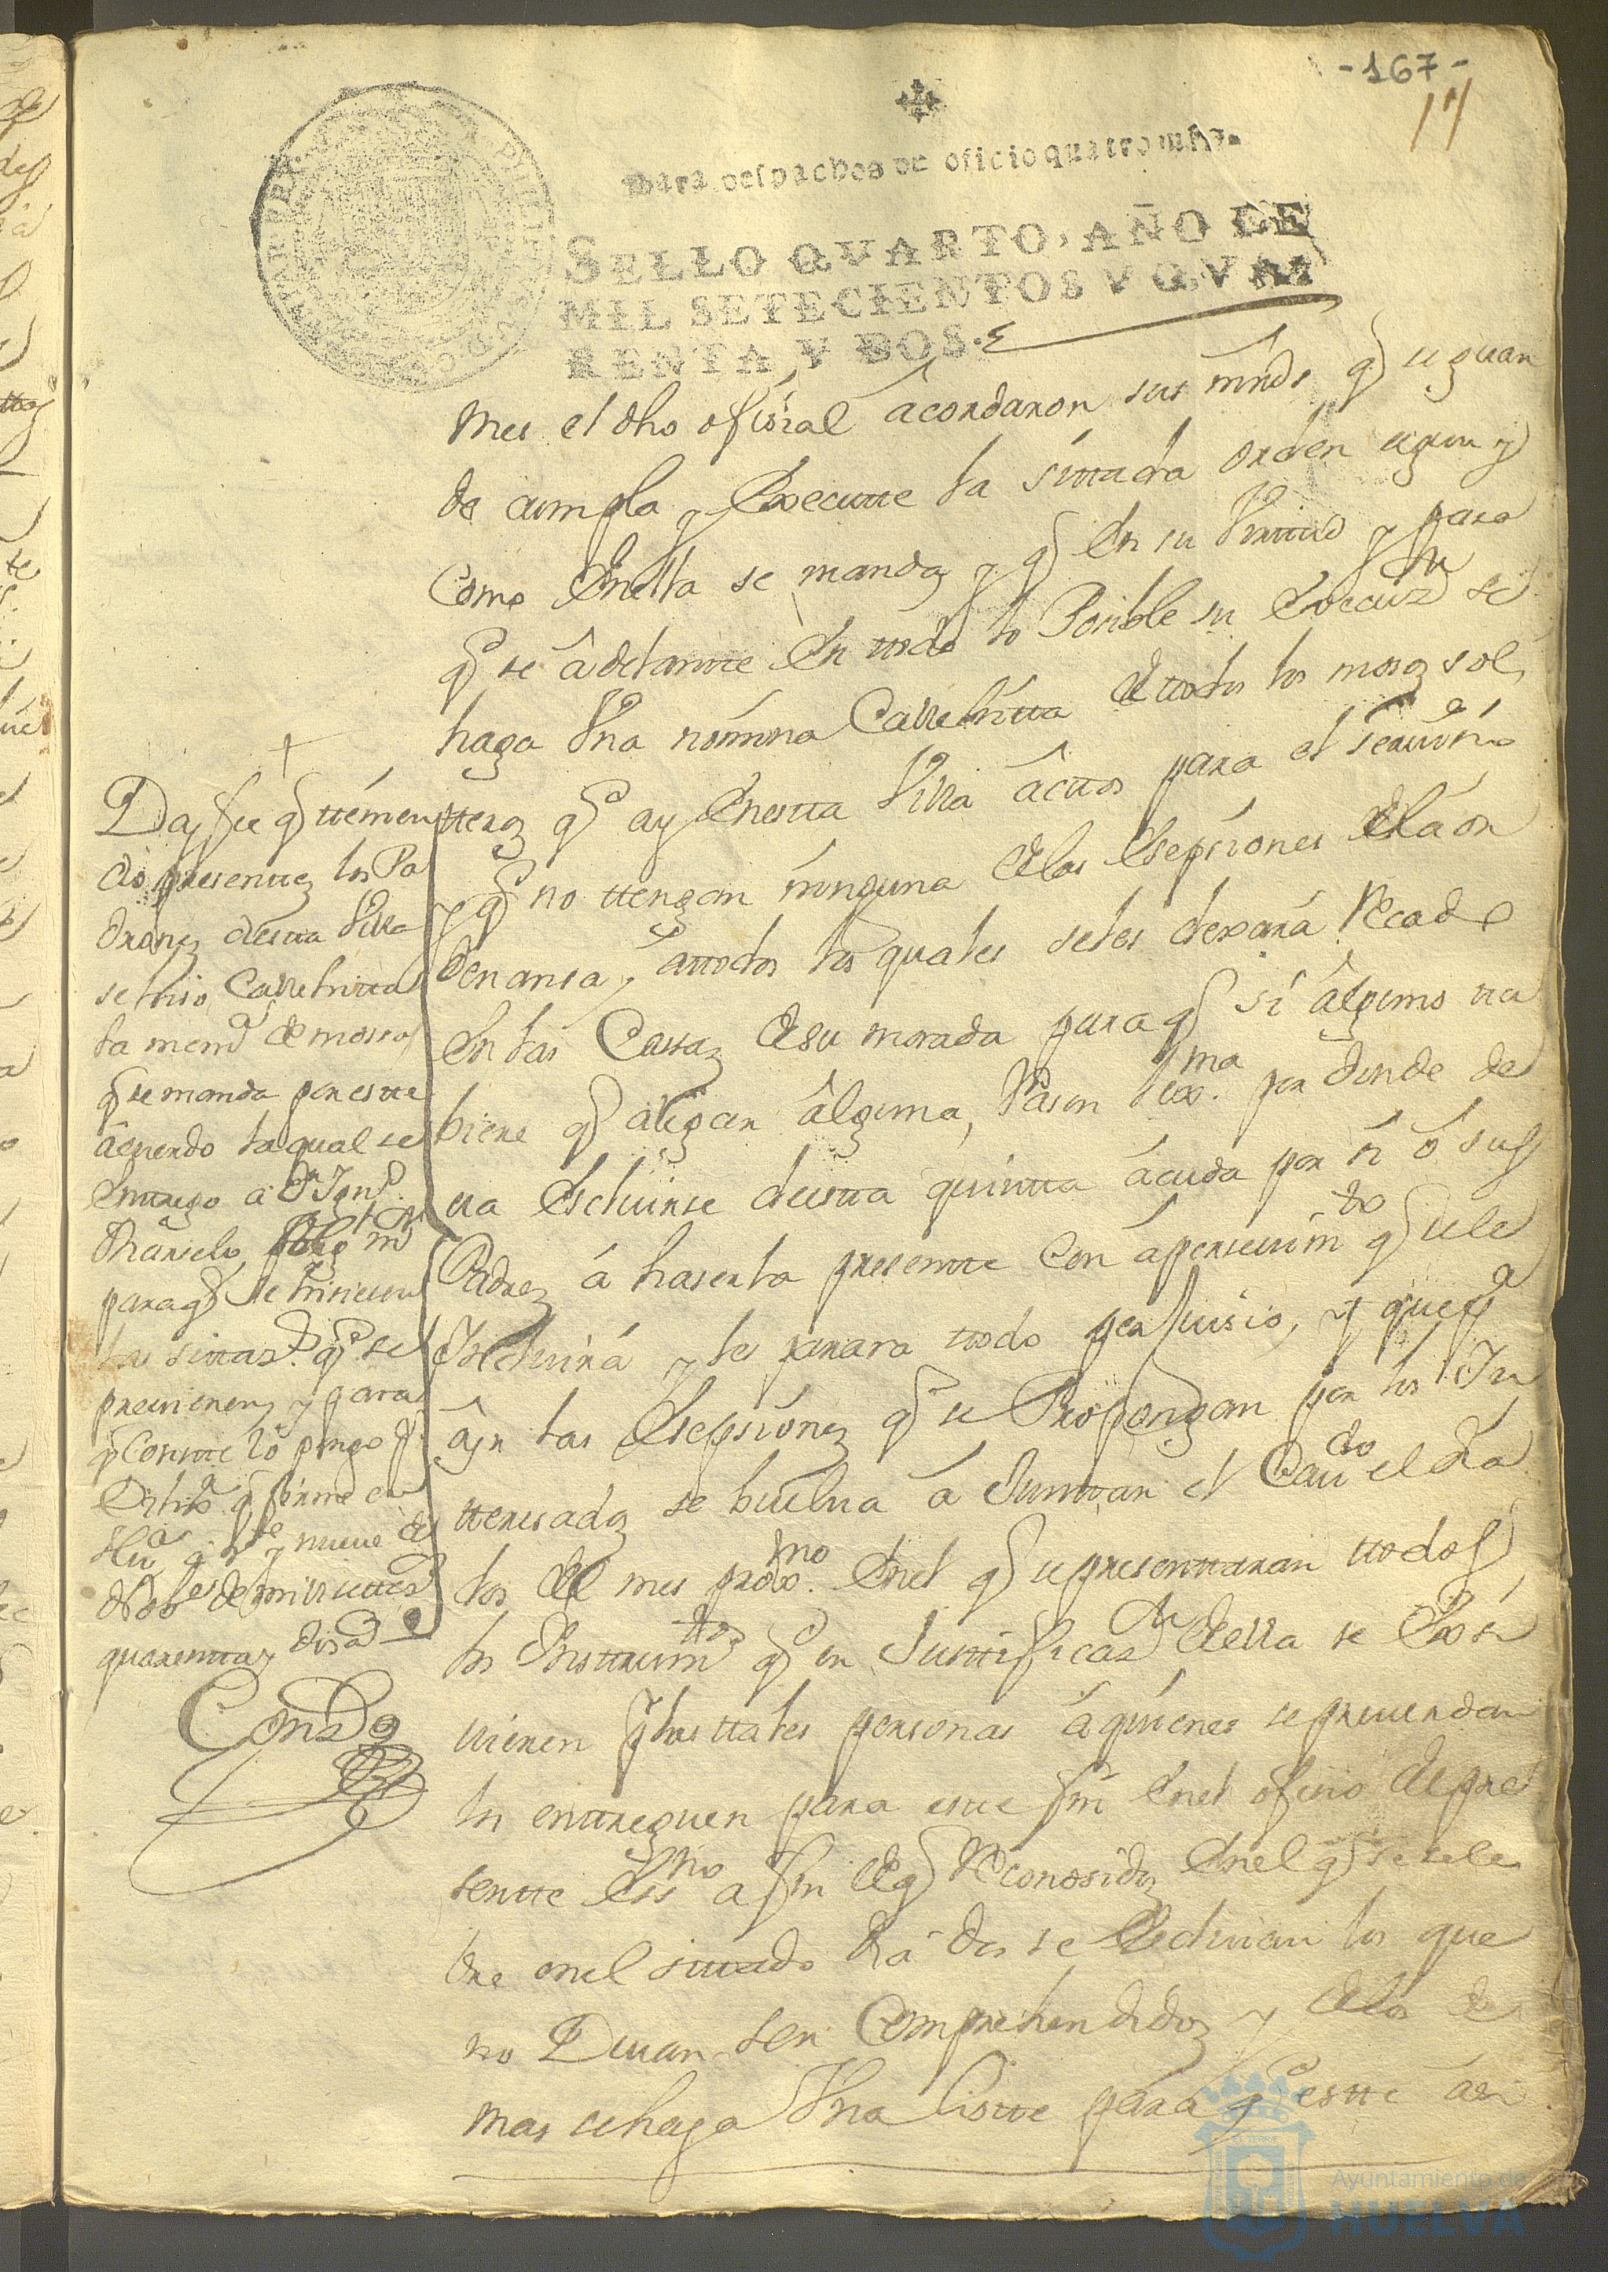 -167-
17
Para despachos de oficio quatro mrs.
SELLO QVARTO, AÑO DE
MIL SETECIENTOS Y QVA
RENTA Y DOS.
mes el dho ofisial acordaron sus mrds q se guar
de cumpla y Execute la sittada orden segun y
Como Enella se manda y q En su Virttud y para
q se adelantte En ttodo lo Posible su Execuzn se
haga Vna nómina Callehitta de ttodos los mosos sol
tteros q ay Enestta Villa acttos para el seruisio
y q no ttengan ninguna de las Esepsiones de la or
denansa, attodos los quales seles dexará Recado
En las Casas de su morada para q si alguno tu
biere q alegar alguna Rason lexma por donde de
va Escluirse desta quintta acuda por si ó sus
Padres á haserla presentte Con apersevimdo q sele
Incluirá y les parara ttodo perjuisio, y que pa
oyr las Esepsiones q se Propongan por los In
tteresados se buelua á Junttar el Caudo el dia
dos del mes proxmo Enel q se presenttaran ttodos
los Insttrumttos q en Justtificazn della se Prosi
uieren y los ttales personas á quienes se preuendan
los enttreguen para este fin Enel ofisio del pre
sentte Essno a fin de q Reconosidos Enel q se sele
bre enel sittado dia dos se Escluian los que
no Deuan ser Comprehendidos y delos de
mas se haga Vna Listte para q estte asi
Doy fee q ttenien
do presenttes los Pa
drones desta Villa
se hiso Callehitta
la memª de mosos
q se manda por estte
acuerdo la qual se
enttrego a Dn Ignº
para q se hisiesen
las sittazs q se
preuienen y para
q Constte lo pongo pr
Dilixª q firmé en
Huª a Vte y nueue de
Nobre de mil settesº
quarentta y dos as
Conzo
Ayuntamiento de
HUELVA